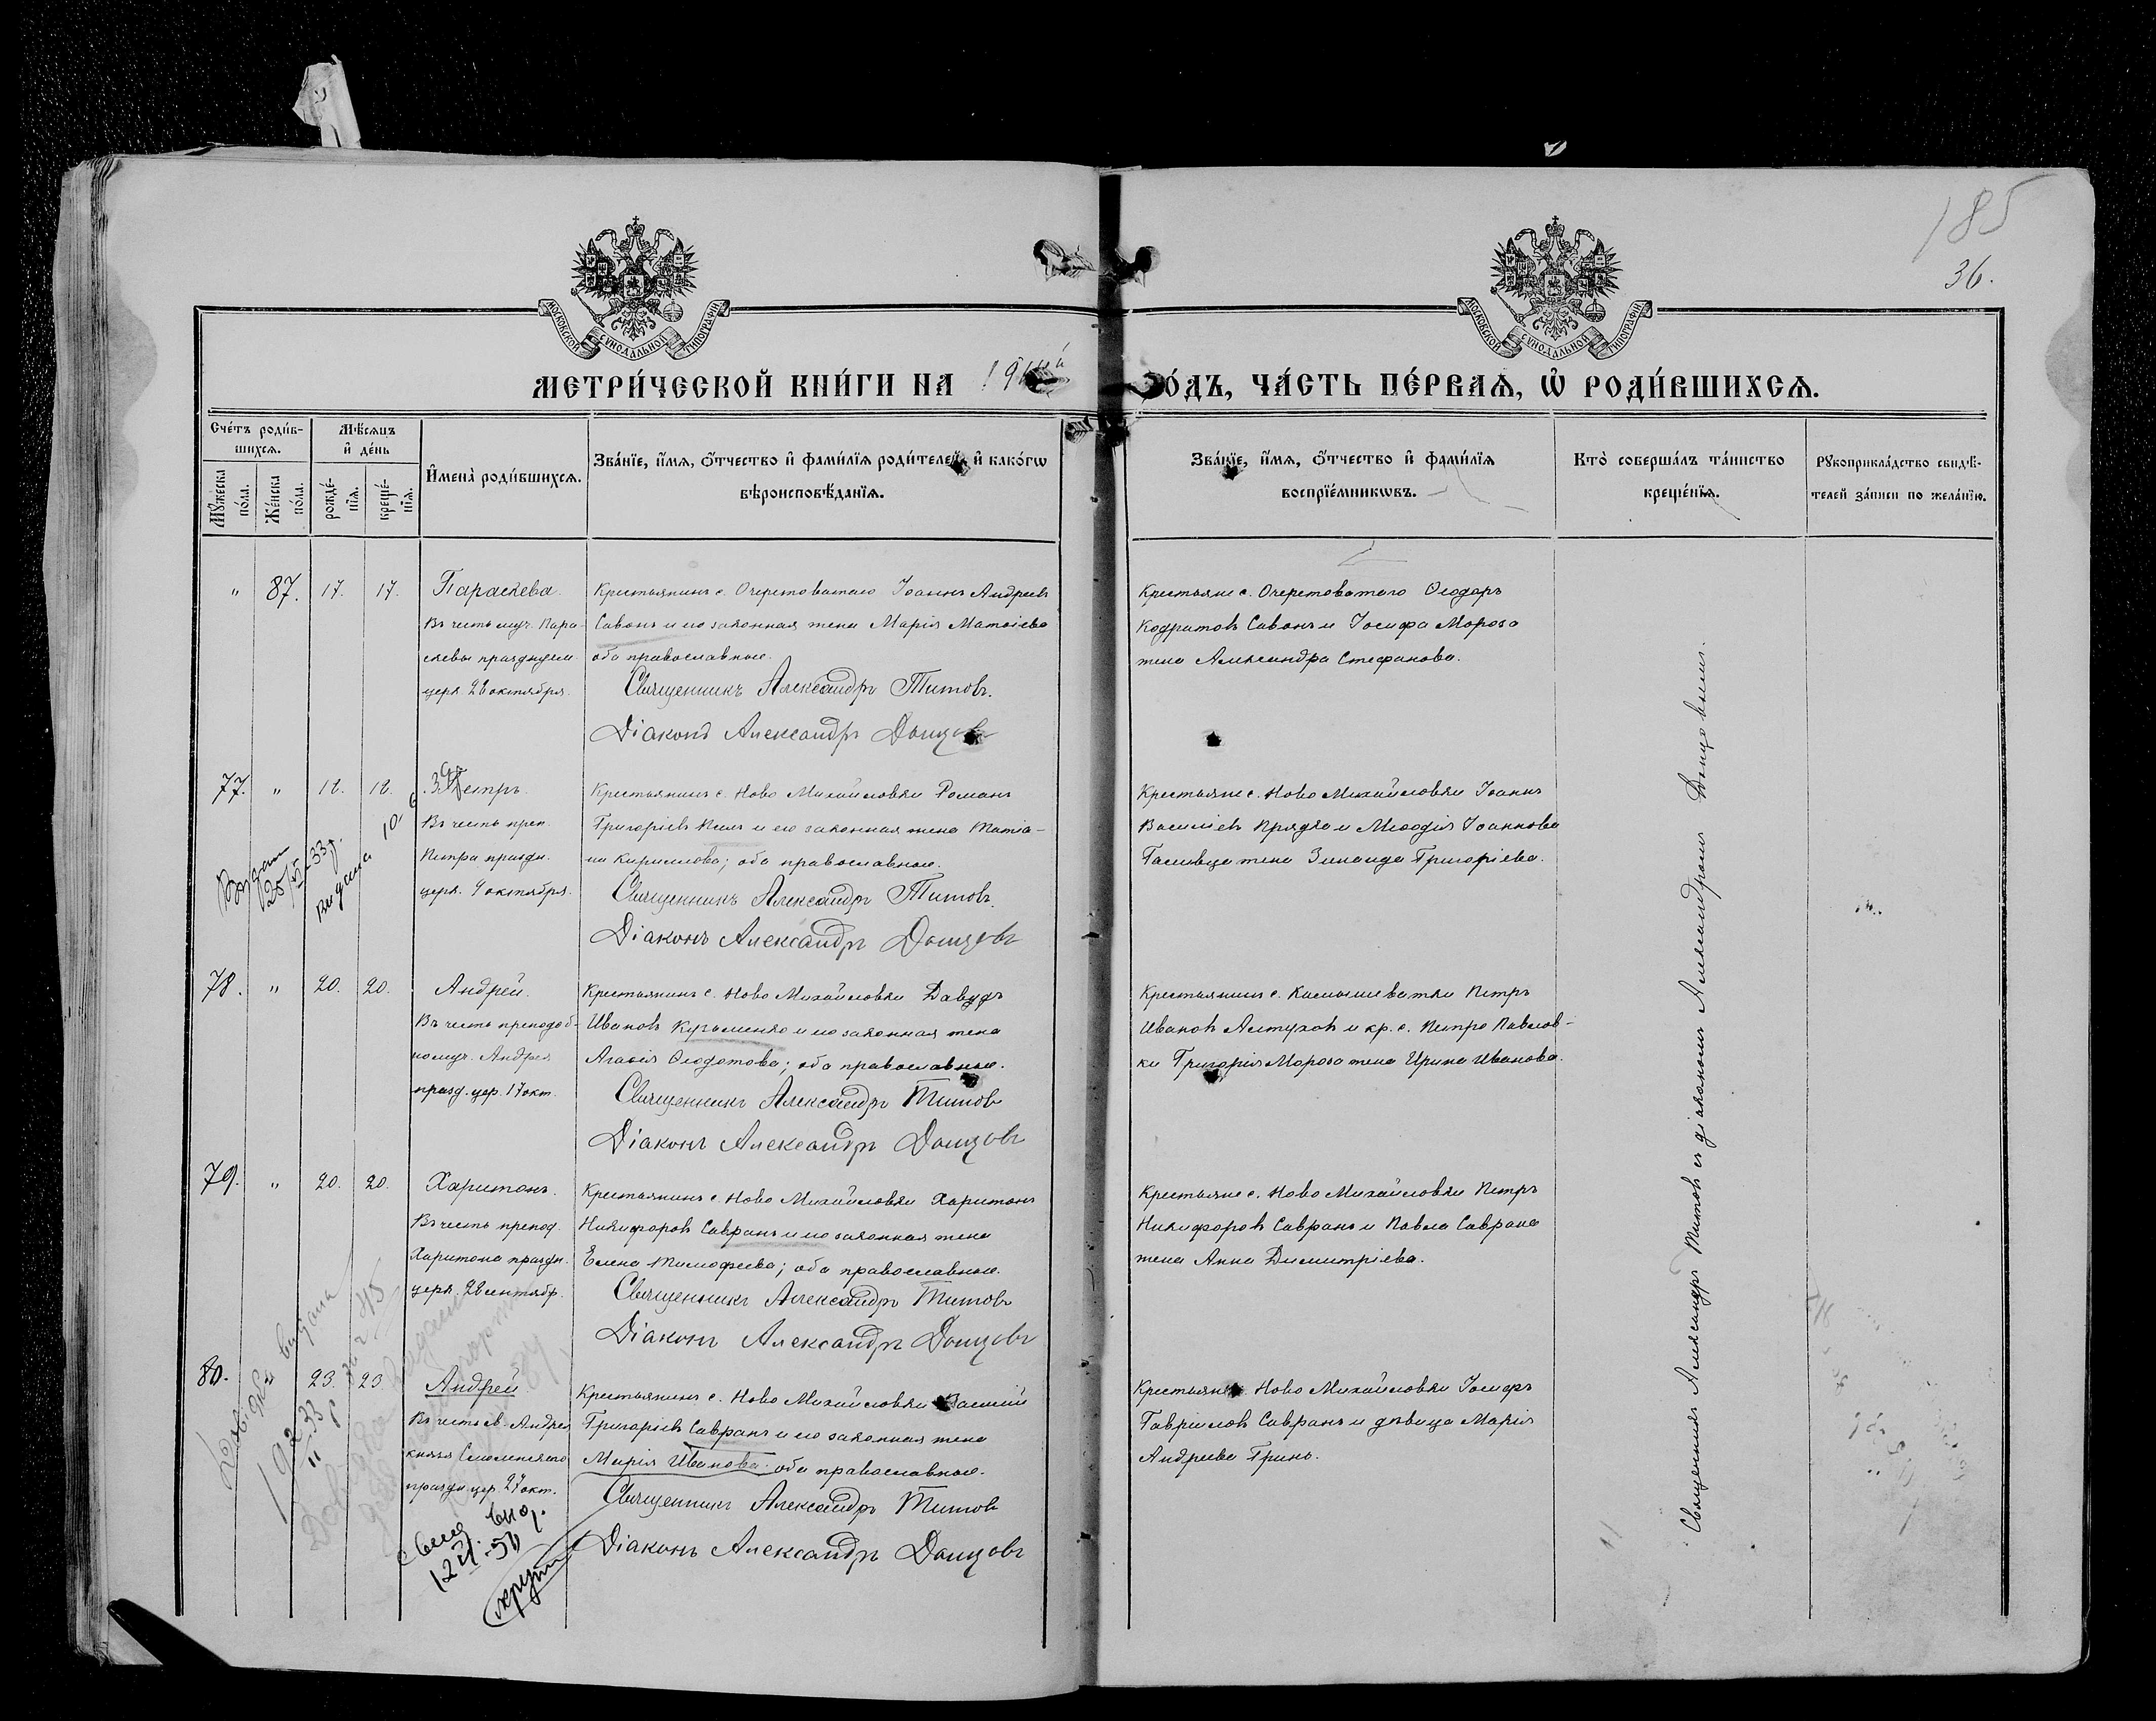 185
36.
МОСКОВСКОЙ СѴНОДАЛЬНОЙ ТИПОГРАФІИ
МОСКОВСКОЙ СѴНОДАЛЬНОЙ ТИПОГРАФІИ
МЕТРИ́ЧЕСКОЙ КНИ́ГИ НА 19
ОДЪ, ЧА́СТЬ ПЕ́РВАѦ, Ѡ РОДИ́ВШИХСѦ.
Сче́тъ роди́в-
шихсѧ.
Мѣ́сѧцъ
и҆ де́нь
Мꙋ́жеска
по́ла.
Же́нска
по́ла.
рожде́-
нїѧ.
креще́-
нїѧ.
И҆мена̀ роди́вшихсѧ.
Зва́нїе, и҆́мѧ, ѻ҆́тчество и҆ фами́лїѧ роди́телей, и҆ како́гѡ
вѣроисповѣ́данїѧ.
Зва́нїе, и҆́мѧ, ѻ҆́тчество и҆ фами́лїѧ
воспрїе́мникѡвъ.
Кто̀ соверша́лъ та́инство
креще́нїѧ.
Рꙋкоприкла́дство свидѣ́-
телей за́писи по жела́нїю.
" 87. 17. 17. Параскева.
Въ честь муч. Пара-
скевы празднуем.
церк. 28 октября.
Крестьянинъ с. Очеретоватаго Іоаннъ Андреевъ
Савонъ и его законная жена Марія Матѳіева
оба православные.
Священникъ Александръ Титовъ.
Діаконъ Александръ Донцовъ
Крестьяне с. Очеретоватаго Ѳеодоръ
Кодратовъ Савонъ и Іосифа Мороза
жена Александра Стефанова.
77. " 18. 18. Петръ.
Въ честь преп.
Петра праздн.
церк. 9 октября.
Крестьянинъ с. Ново Михайловки Романъ
Григоріевъ и его законная жена Татіа-
на Кириллова; оба православные.
Священникъ Александръ Титовъ.
Діаконъ Александръ Донцовъ
Крестьяне с. Ново Михайловки Іоаннъ
Василіевъ Прядка и Меѳодія Іоаннова
жена Зинаида Григоріева.
78. " 20. 20. Андрей.
Въ честь преподоб-
номуч. Андрея
празд. цер. 17 окт.
Крестьянинъ с. Ново Михайловки Давидъ
Ивановъ Кузьменко и его законная жена
Агаѳія Ѳеодотова; оба православные.
Священникъ Александръ Титовъ
Діаконъ Александръ Донцовъ
Крестьянинъ с. Камышеватки Петръ
Ивановъ Алтуховъ и кр. с. Петро Павлов-
ки Григорія Мороза жена Ирина Иванова.
79. " 20. 20. Харитонъ.
Въ честь препод.
Харитона праздн.
церк. 28 сентябр.
Крестьянинъ с. Ново Михайловки Харитонъ
Никифоровъ Савранъ и его законная жена
Елена Тимофеева; оба православные.
Священникъ Александръ Титовъ
Діаконъ Александръ Донцовъ
Крестьяне с. Ново Михайловки Петръ
Никифоровъ Савранъ и Павла Саврана
жена Анна Димитріева.
80. 23. 23. Андрей
Въ честь св. Андрея
князя Смоленскаго
праздн. цер. 27 окт.
Крестьянинъ с. Ново Михайловки Василій
Григоріевъ Савранъ и его законная жена
Марія Иванова оба православные.
Священникъ Александръ Титовъ
Діаконъ Александръ Донцовъ
Крестьяне Ново Михайловки Іосифъ
Гавріиловъ Савранъ и дѣвица Марія
Андреева Гринь.
Священникъ Александръ Титовъ съ діакономъ Александромъ Донцовымъ.